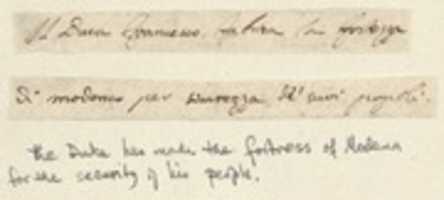 Il Duca Francesco, fabrica la fortezza
Di modena per sicurezza de' suoi popoli.
the Duke has made the fortress of Modena
for the security of his people.